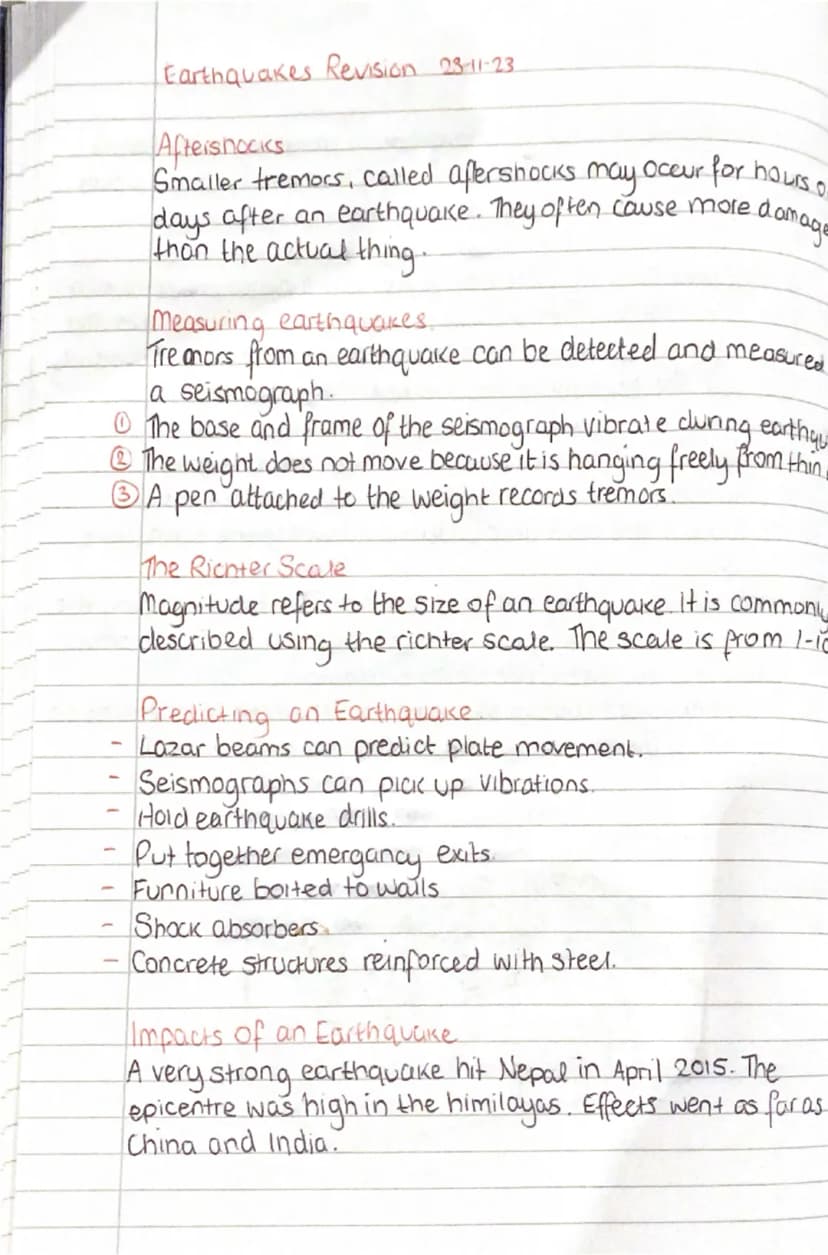 Earthquakes Revision 23-11-23
Aftershocks
Smaller tremors, called aftershocks may occur for hours o
days after an earthquake. They often cause more damage
than the actual thing.
Measuring earthquakes
Tremors from an earthquake can be detected and measured
a seismograph.
① The base and frame of the seismograph vibrate during earthqu
② The weight does not move because it is hanging freely from thin
③ A pen attached to the weight records tremors.
The Richter Scale
Magnitude refers to the size of an earthquake. It is commonly
described using the richter scale. The scale is from 1-10
Predicting an Earthquake
- Lazar beams can predict plate movement.
- Seismographs can pick up vibrations.
- Hold earthquake drills.
- Put together emergancy exits.
- Furniture bolted to walls
- Shock absorbers
- Concrete structures reinforced with steel.
Impacts of an Earthquake
A very strong earthquake hit Nepal in April 2015. The
epicentre was high in the himilayas. Effects went as far as
China and India.